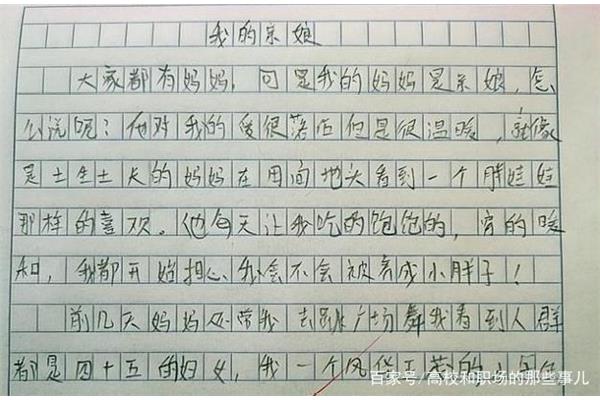 我的亲娘
大家都有妈妈，可是我的妈妈是亲娘，怎
么说呢？他对我的爱很落后但是很温暖，就像
是土生土长的妈妈在田间地头看到一个胖娃娃
那样的喜欢。他每天让我吃的饱饱的，穿的暖
和，我都开始担心我会不会被养成小胖子！
前几天妈妈还带我去跳广场舞我看到人群
都是四十五的妇女，我一个风华正茂的小
百家号/高校和职场的那些事儿